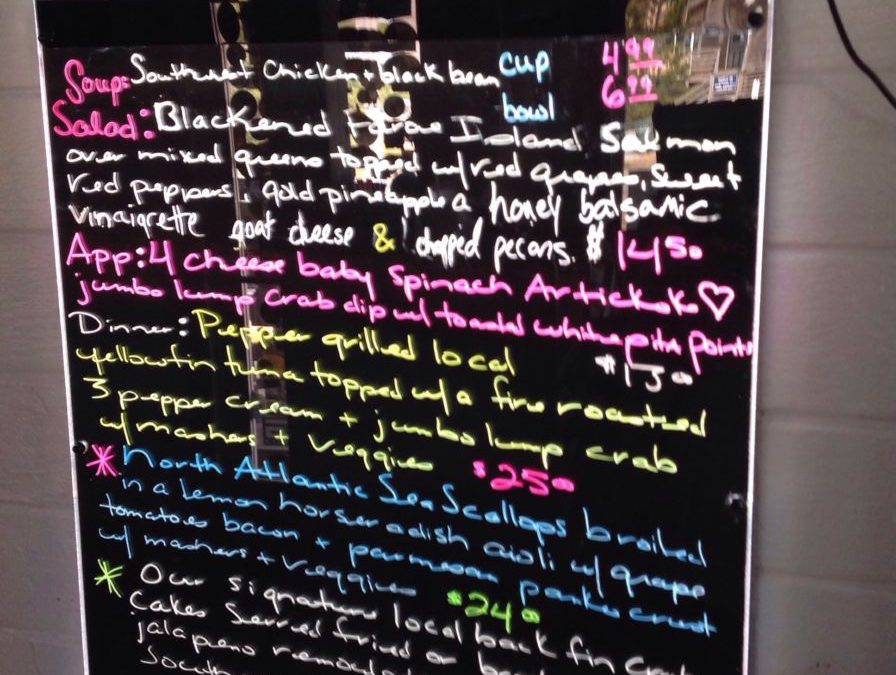 Soup: Southwest Chicken + black bean cup 4 99
bowl 6 99
Salad: Blackened Faroe Island Salmon
over mixed greens topped w/ red grapes, sweet
red peppers, gold pineapple a honey balsamic
vinaigrette goat cheese & chopped pecans. $14 50
App: 4 cheese baby Spinach Artichoke
jumbo lump crab dip w/ toasted white pita points
$13 00
Dinner: Pepper grilled local
yellowfin tuna topped w/ a fire roasted
3 pepper cream + jumbo lump crab
w/ mashers + veggies $25 00
* North Atlantic Sea Scallops broiled
in a lemon horseradish aioli w/ grape
tomatoes bacon + parmesan panko crust
w/ mashers + veggies $24 00
* Our signature local back fin crab
cakes served fried or
jalapeno
South